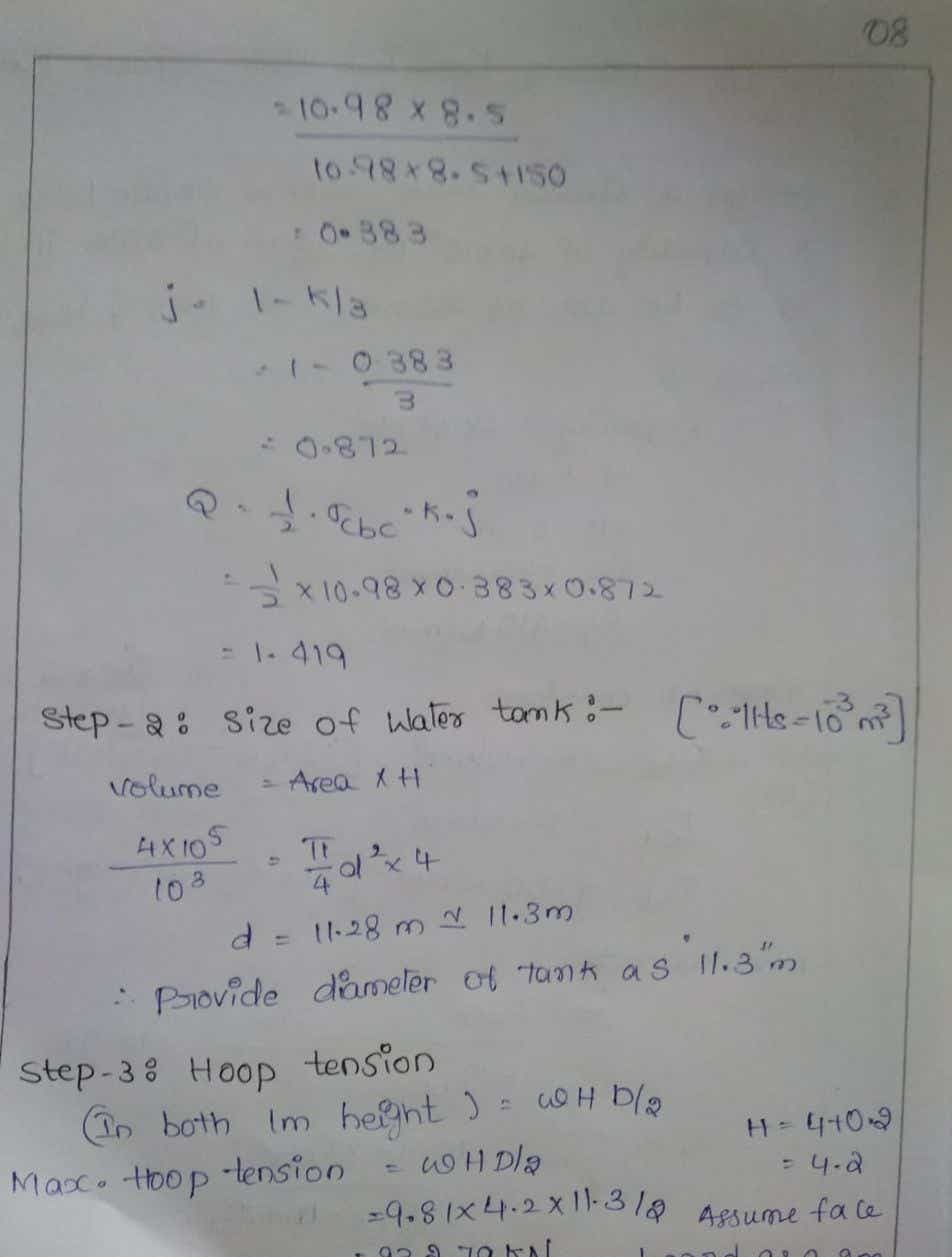 08
= 10.98 × 8.5
10.98 × 8.5 + 150
= 0.383
j = 1 - K/3
= 1 - 0.383
3
= 0.872
Q = 1/2 . σcbc . K . j
= 1/2 × 10.98 × 0.383 × 0.872
= 1.419
Step-2: Size of Water tank:- [∵ 1lts = 10⁻³ m³]
Volume = Area × H
4×10⁵ / 10³ = π/4 d² × 4
d = 11.28 m ≃ 11.3m
∴ Provide diameter of tank as "11.3"m
Step-3: Hoop tension
(In both 1m height) = ωH D/2 H = 4+0.2
Max. Hoop tension = ωHD/2 = 4.2
= 9.81×4.2×11.3/2 Assume face